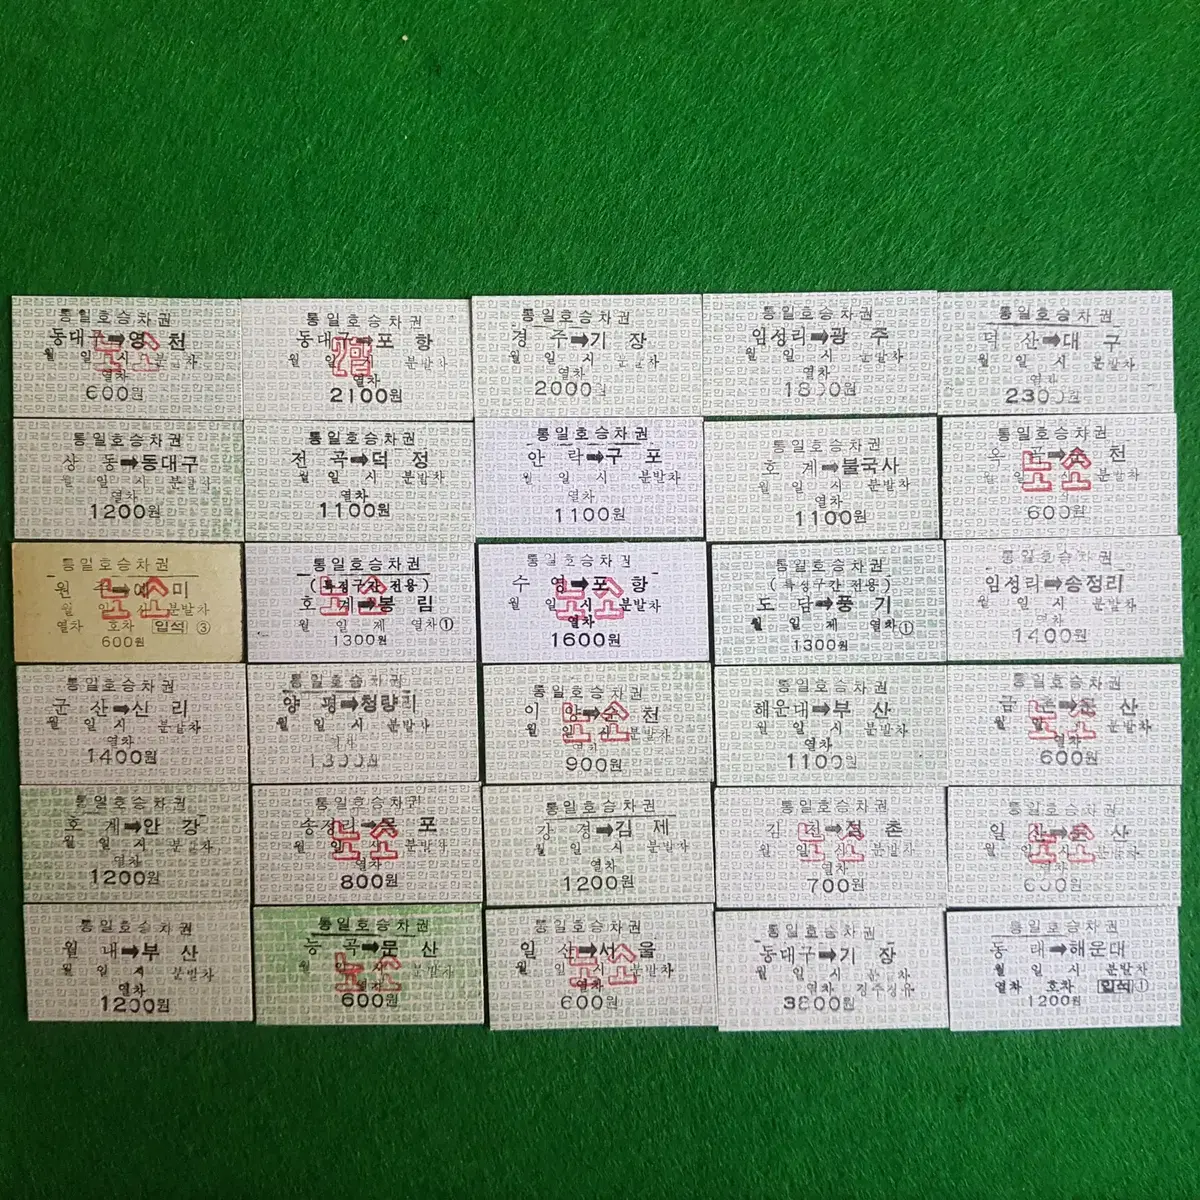 통일호승차권
동대구➡영 천
노소
월 일 시 분발차
열차
600원
통일호승차권
동대구➡포 항
월 일 시 분발차
열차
2100원
통일호승차권
경 주➡기 장
월 일 시 분발차
열차
2000원
통일호승차권
임성리➡광 주
월 일 시 분발차
열차
1800원
통일호승차권
덕 산➡대 구
월 일 시 분발차
열차
2300원
통일호승차권
상 동➡동대구
월 일 시 분발차
열차
1200원
통일호승차권
전 곡➡덕 정
월 일 시 분발차
열차
1100원
통일호승차권
안 락➡구 포
월 일 시 분발차
열차
1100원
통일호승차권
호 계➡불국사
월 일 시 분발차
열차
1100원
통일호승차권
옥 곡➡순 천
노소
월 일 시 분발차
열차
600원
통일호승차권
원 주➡예 미
노소
월 일 시 분발차
열차 호차 입석 ③
600원
통일호승차권
(특정구간 전용)
호 계➡봉 림
노소
월 일 제 열차①
1300원
통일호승차권
수 영➡포 항
노소
월 일 시 분발차
열차
1600원
통일호승차권
(특정구간 전용)
도 담➡풍 기
월 일 제 열차①
1300원
통일호승차권
임성리➡송정리
월 일 시 분발차
열차
1400원
통일호승차권
군 산➡신 리
월 일 시 분발차
열차
1400원
통일호승차권
양 평➡청량리
월 일 시 분발차
열차
1300원
통일호승차권
이 양➡순 천
노소
월 일 시 분발차
열차
900원
통일호승차권
해운대➡부 산
월 일 시 분발차
열차
1100원
통일호승차권
금 촌➡문 산
노소
월 일 시 분발차
열차
600원
통일호승차권
호 계➡안 강
월 일 시 분발차
열차
1200원
통일호승차권
송정리➡목 포
노소
월 일 시 분발차
열차
800원
통일호승차권
강 경➡김 제
월 일 시 분발차
열차
1200원
통일호승차권
김 천➡점촌
노소
월 일 시 분발차
열차
700원
통일호승차권
일 산➡문 산
노소
월 일 시 분발차
열차
600원
통일호승차권
월 내➡부 산
월 일 시 분발차
열차
1200원
통일호승차권
능 곡➡문 산
노소
월 일 시 분발차
열차
600원
통일호승차권
일 산➡서 울
노소
월 일 시 분발차
열차
600원
통일호승차권
동대구➡기 장
월 일 시 분 차
열차 경주경유
3800원
통일호승차권
동 래➡해운대
월 일 시 분발차
열차 호차 입석 ①
1200원